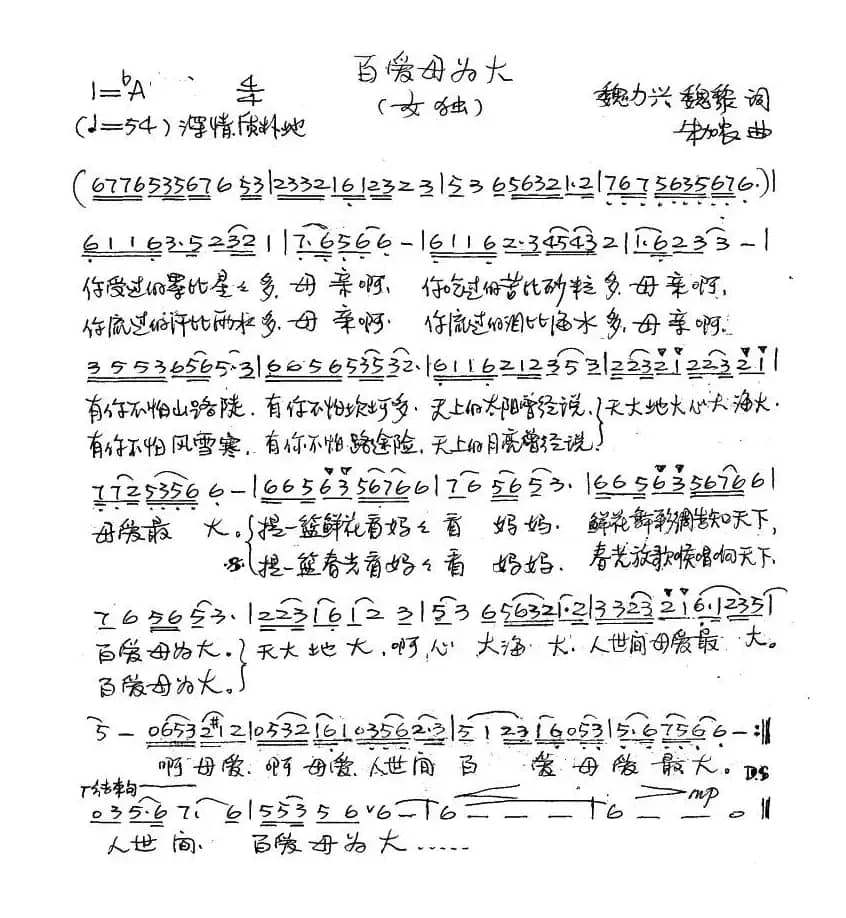 百爱母为大
1=♭A 4/4
(女独)
魏力兴 魏黎 词
(♩=54) 深情质朴地
曲
(6776535676 53|23321612323|53656321·2|7675635676·)|
61163·52321|7·6566-|61162·345432|1·6233-|
你受过的累比星星多.母亲啊. 你吃过的苦比砂粒多.母亲啊.
你流过的汗比雨水多.母亲啊. 你流过的泪比海水多,母亲啊.
35536565·3|66565353 2·|61162123 53|2232122321|
有你不怕山路陡.有你不怕坎坷多.天上的太阳曾经说.}天大地大心大海大.
有你不怕风雪寒,有你不怕路途险,天上的月亮曾经说.
77253566-|6656356766|76 5653·|6656356766|
母爱最 大.{提一篮鲜花看妈妈看 妈妈. 鲜花舞彩绸告知天下,
提一篮春光看妈妈看 妈妈. 春光放歌喉唱响天下.
765653·|22316123|53656321·2|3323216·1235|
百爱母为大.}天大地大,啊心 大海大.人世间母爱最 大。
百爱母为大.
5-06532#12|05321610356 2·3|512316053|5·67566-:‖
啊母爱.啊母爱.人世间 百 爱母爱最大。 D.S
结束句
035·67·6|553566-|6---|6--0‖
mp
人世间. 百爱母为大......